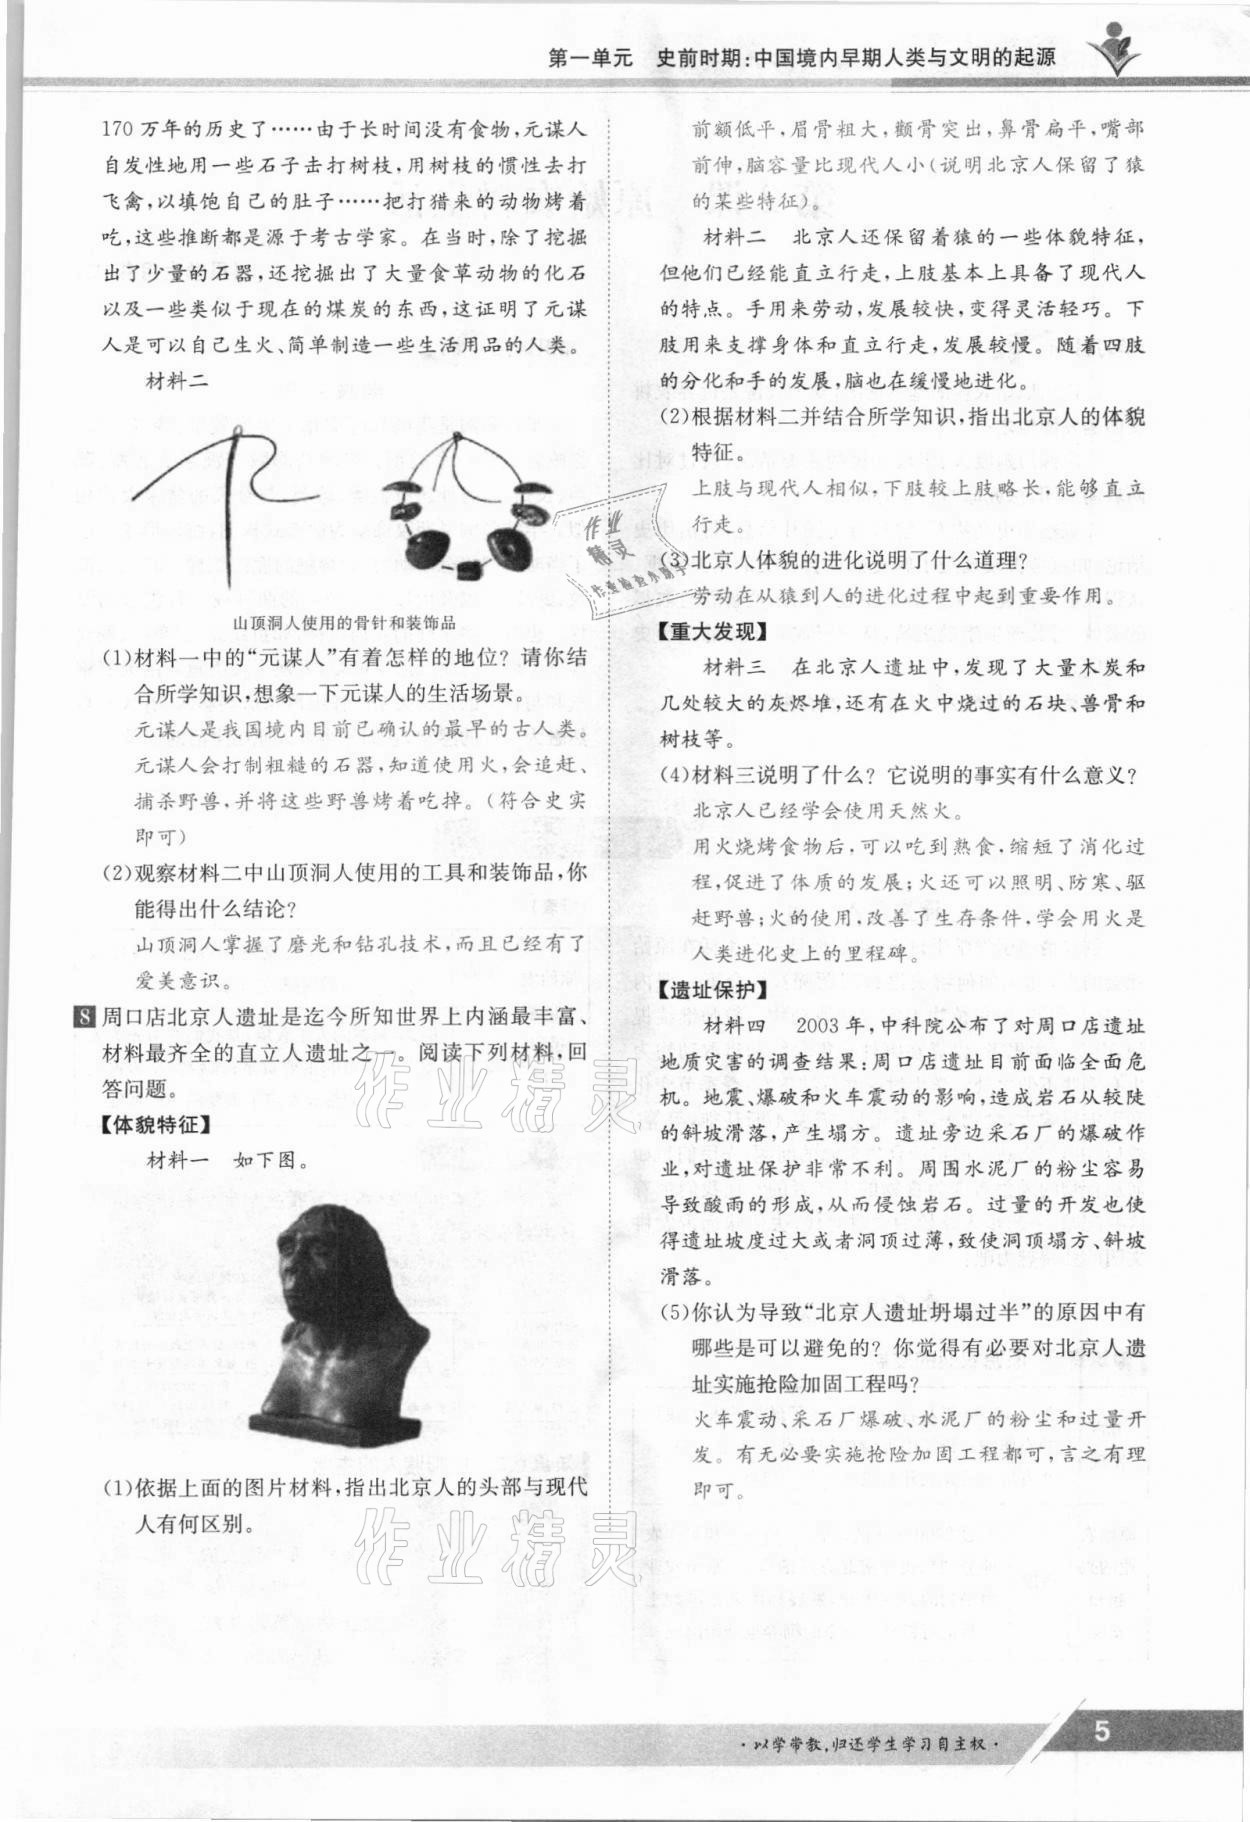 第一单元 史前时期:中国境内早期人类与文明的起源
170 万年的历史了……由于长时间没有食物,元谋人
自发性地用一些石子去打树枝,用树枝的惯性去打
飞禽,以填饱自己的肚子……把打猎来的动物烤着
吃,这些推断都是源于考古学家。在当时,除了挖掘
出了少量的石器,还挖掘出了大量食草动物的化石
以及一些类似于现在的煤炭的东西,这证明了元谋
人是可以自己生火、简单制造一些生活用品的人类。
材料二
山顶洞人使用的骨针和装饰品
(1)材料一中的“元谋人”有着怎样的地位?请你结
合所学知识,想象一下元谋人的生活场景。
元谋人是我国境内目前已确认的最早的古人类。
元谋人会打制粗糙的石器,知道使用火,会追赶、
捕杀野兽,并将这些野兽烤着吃掉。(符合史实
即可)
(2)观察材料二中山顶洞人使用的工具和装饰品,你
能得出什么结论?
山顶洞人掌握了磨光和钻孔技术,而且已经有了
爱美意识。
8 周口店北京人遗址是迄今所知世界上内涵最丰富、
材料最齐全的直立人遗址之一。阅读下列材料,回
答问题。
【体貌特征】
材料一 如下图。
(1)依据上面的图片材料,指出北京人的头部与现代
人有何区别。
前额低平,眉骨粗大,颧骨突出,鼻骨扁平,嘴部
前伸,脑容量比现代人小(说明北京人保留了猿
的某些特征)。
材料二 北京人还保留着猿的一些体貌特征,
但他们已经能直立行走,上肢基本上具备了现代人
的特点。手用来劳动,发展较快,变得灵活轻巧。下
肢用来支撑身体和直立行走,发展较慢。随着四肢
的分化和手的发展,脑也在缓慢地进化。
(2)根据材料二并结合所学知识,指出北京人的体貌
特征。
上肢与现代人相似,下肢较上肢略长,能够直立
行走。
(3)北京人体貌的进化说明了什么道理?
劳动在从猿到人的进化过程中起到重要作用。
【重大发现】
材料三 在北京人遗址中,发现了大量木炭和
几处较大的灰烬堆,还有在火中烧过的石块、兽骨和
树枝等。
(4)材料三说明了什么?它说明的事实有什么意义?
北京人已经学会使用天然火。
用火烧烤食物后,可以吃到熟食,缩短了消化过
程,促进了体质的发展;火还可以照明、防寒、驱
赶野兽;火的使用,改善了生存条件,学会用火是
人类进化史上的里程碑。
【遗址保护】
材料四 2003 年,中科院公布了对周口店遗址
地质灾害的调查结果:周口店遗址目前面临全面危
机。地震、爆破和火车震动的影响,造成岩石从较陡
的斜坡滑落,产生塌方。遗址旁边采石厂的爆破作
业,对遗址保护非常不利。周围水泥厂的粉尘容易
导致酸雨的形成,从而侵蚀岩石。过量的开发也使
得遗址坡度过大或者洞顶过薄,致使洞顶塌方、斜坡
滑落。
(5)你认为导致“北京人遗址坍塌过半”的原因中有
哪些是可以避免的?你觉得有必要对北京人遗
址实施抢险加固工程吗?
火车震动、采石厂爆破、水泥厂的粉尘和过量开
发。有无必要实施抢险加固工程都可,言之有理
即可。
作业
精灵
作业检查小助手
作业精灵
作业精灵
·以学带教,归还学生学习自主权·
5